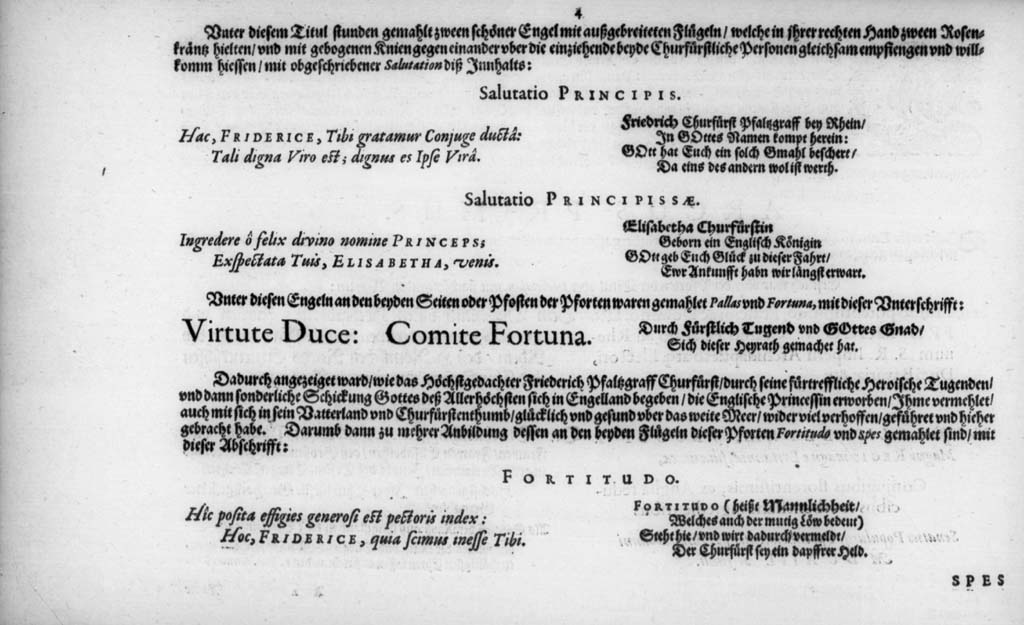 4
Vnter diesem Titul stunden gemahlt zween schöner Engel mit außgebreiteten Flügeln/ welche in jhrer rechten Hand zween Rosen-
kräntz hielten/ vnd mit gebogenen Knien gegen einander vber die einziehende beyde Churfürstliche Personen gleichsam empfiengen vnd will-
komm hiessen/ mit obgeschriebener Salutation diß Innhalts:
Salutatio PRINCIPIS.
Hac, FRIDERICE, Tibi gratamur Conjuge ductâ:
Tali digna Viro est; dignus es Ipse Virâ.
Friedrich Churfürst Pfaltzgraff bey Rhein/
In GOttes Namen kompt herein:
GOtt hat Euch ein solch Gmahl beschert/
Da eins des andern wol ist werth.
Salutatio PRINCIPISSÆ.
Ingredere ô felix divino nomine PRINCEPS;
Exspectata Tuis, ELISABETHA, venis.
Elisabetha Churfürstin
Geborn ein Englisch Königin
GOtt geb Euch Glück zu dieser Fahrt/
Ewr Ankunfft habn wir längst erwart.
Vnter diesen Engeln an den beyden Seiten oder Pfosten der Pforten waren gemahlet Pallas vnd Fortuna, mit dieser Vnterschrifft:
Virtute Duce: Comite Fortuna.
Durch Fürstlich Tugend vnd GOttes Gnad/
Sich dieser Heyrath gemachet hat.
Dadurch angezeiget ward/ wie das Höchstgedachter Friederich Pfaltzgraff Churfürst/ durch seine fürtreffliche Heroische Tugenden/
vnd dann sonderliche Schickung Gottes deß Allerhöchsten sich in Engelland begeben/ die Englische Princessin erworben/ Ihme vermehlet/
auch mit sich in sein Vatterland vnd Churfürstenthumb/ glücklich vnd gesund vber das weite Meer/ wider viel verhoffen/ geführet vnd hieher
gebracht habe. Darumb dann zu mehrer Anbildung dessen an den beyden Flügeln dieser Pforten Fortitudo vnd spes gemahlet sind/ mit
dieser Abschrifft:
FORTITUDO.
Hîc posita effigies generosi est pectoris index:
Hoc, FRIDERICE, quia scimus inesse Tibi.
FORTITUDO (heißt Mannlichheit/
Welches auch der mutig Löw bedeut)
Steht hie/ vnd wirt dadurch vermeldt/
Der Churfürst sey ein dapffrer Held.
SPES